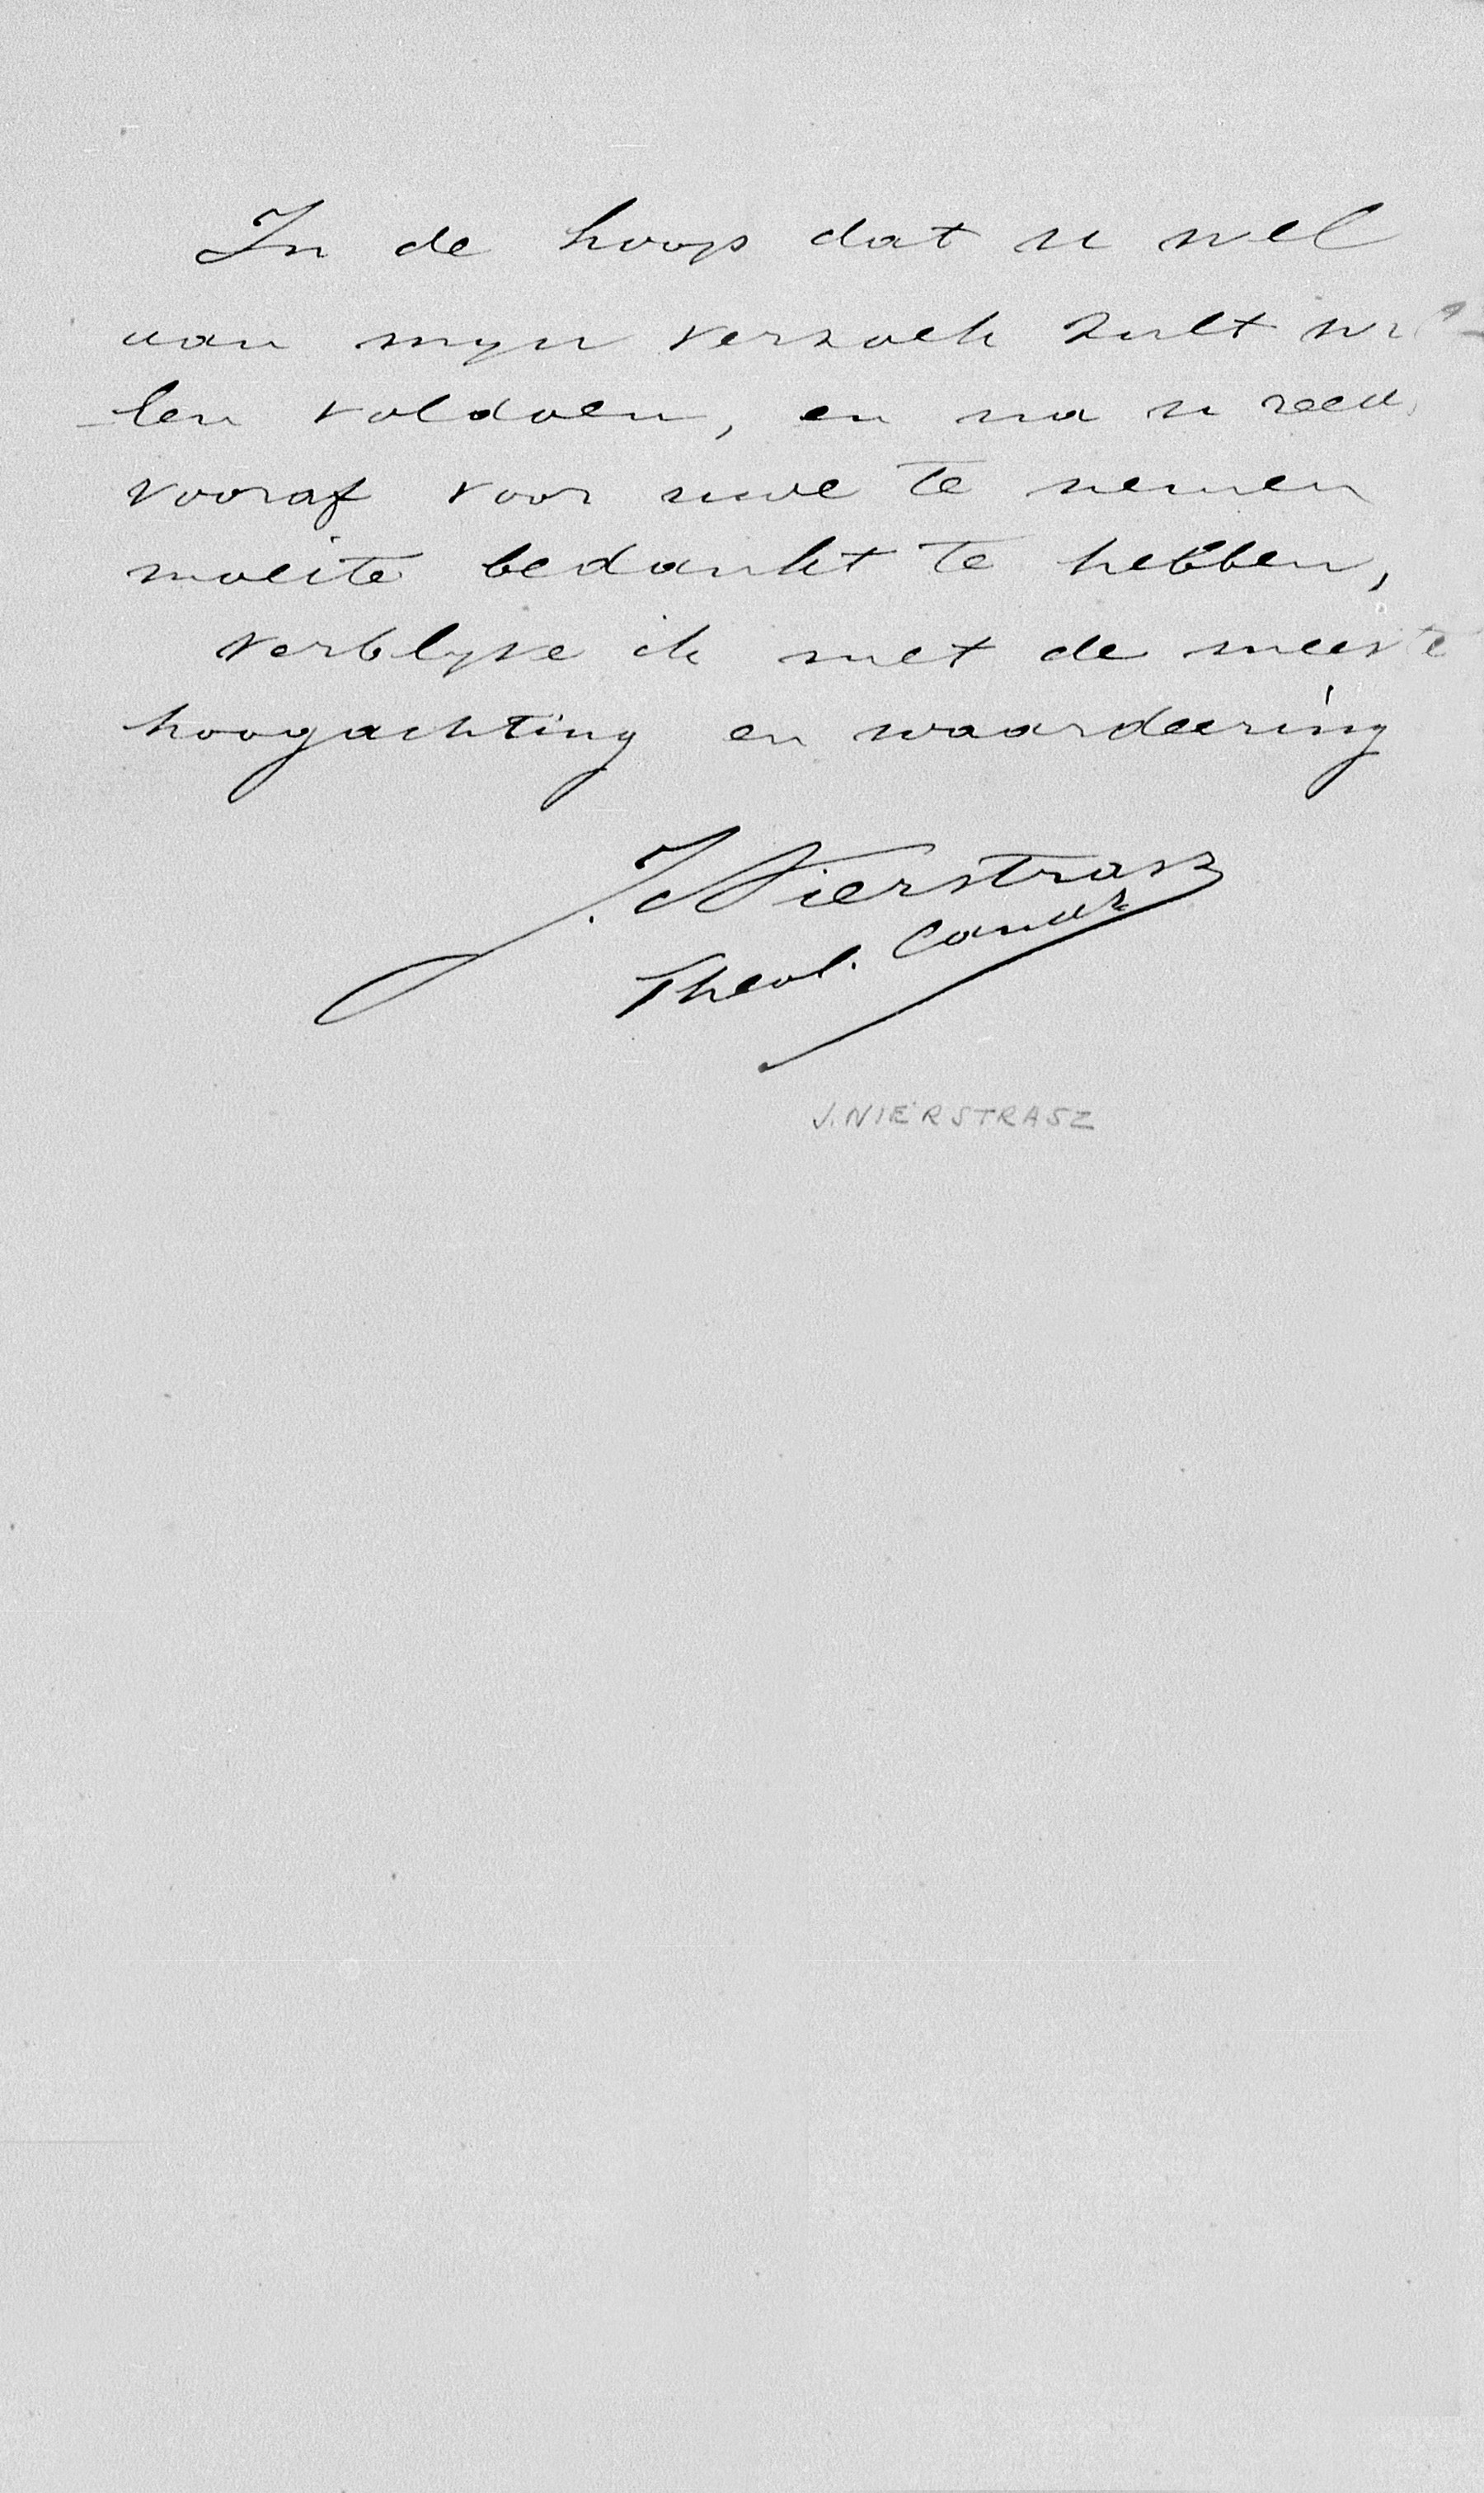 In de hoop dat u wel
aan mijn verzoek zult wil-
len voldoen, en na u reeds
vooraf voor uwe te nemen
moeite bedankt te hebben,
verblijve ik met de meeste
hoogachting en waardeering
J. Nierstrasz
Theol. Candt
J. NIERSTRASZ